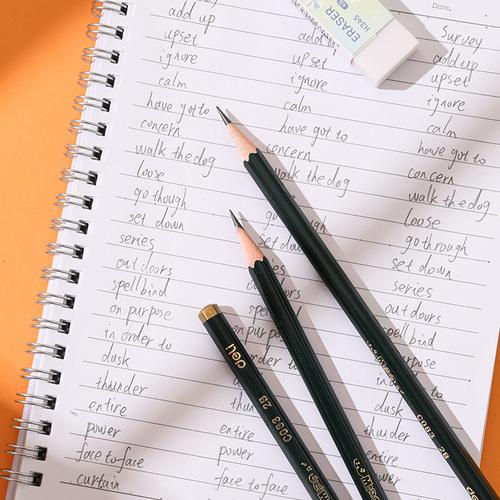 Date.
add up
Survey
upset
add up
add up
ignore
upset
upset
calm
ignore
ignore
have got to
calm
calm
concern
have got to
have got to
walk the dog
concern
concern
loose
walk the dog
walk the dog
go though
loose
set down
go through
series
set down
set down
outdoors
series
spellbind
outdoors
on purpose
spellbind
in order to
on purpose
purpose
dusk
in
to
thunder
dusk
entire
thunder
power
entire
entire
face to face
power
power
curtain
face to face
ERASER
H346
deli
C083 2B
C083 2B